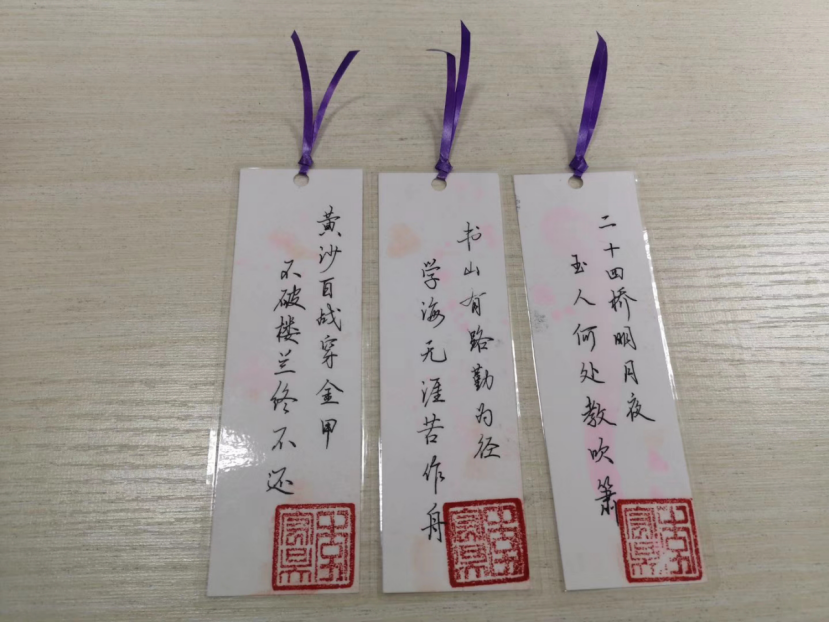 黄沙百战穿金甲
不破楼兰终不还
书山有路勤为径
学海无涯苦作舟
二十四桥明月夜
玉人何处教吹箫